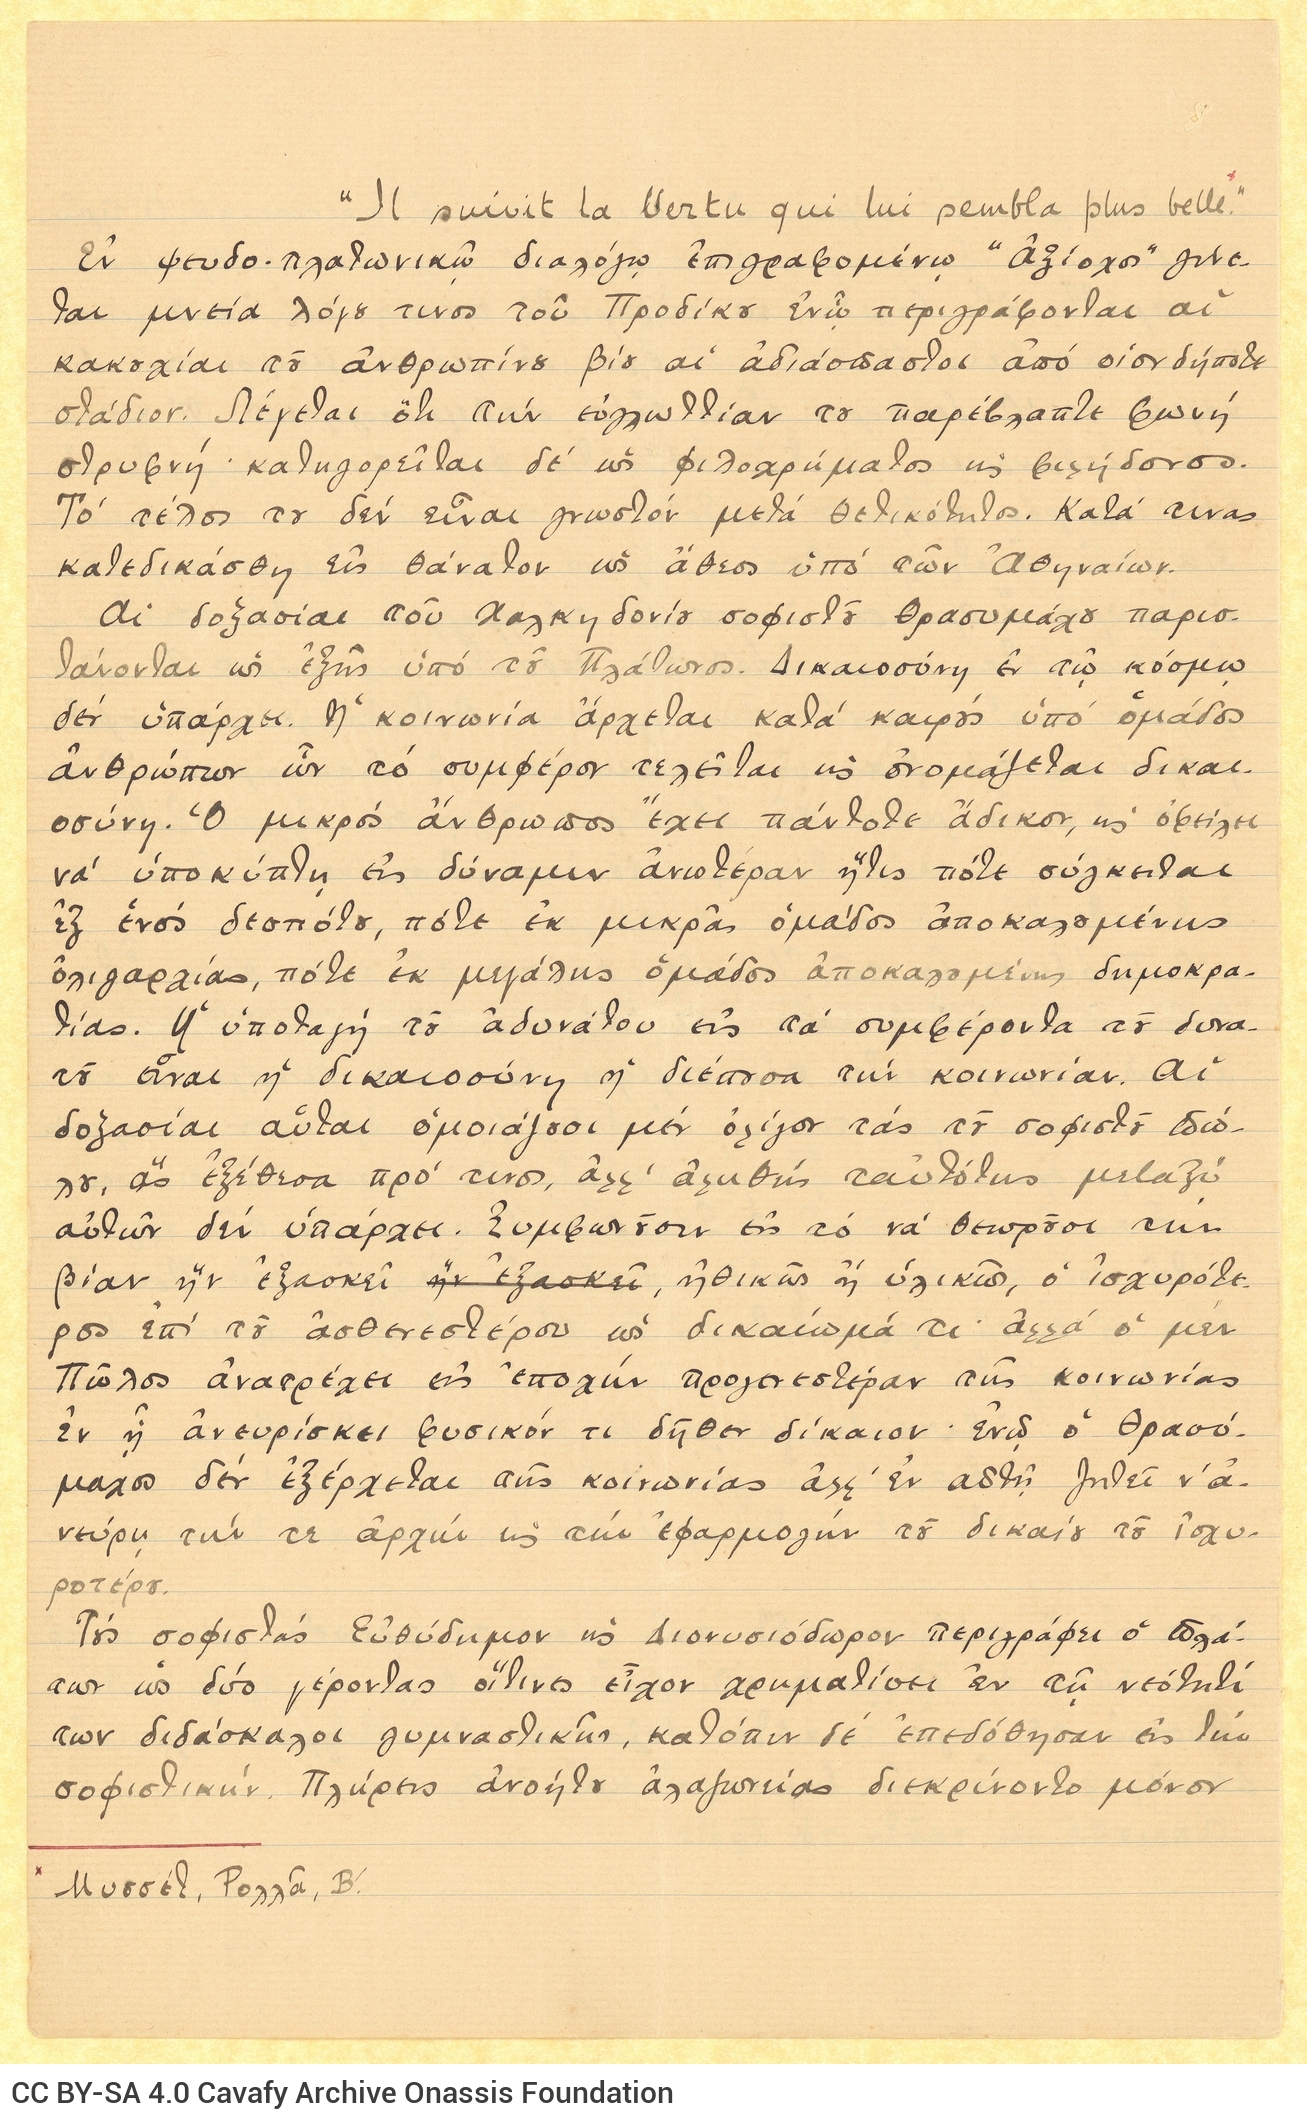 8
"Il suivit la Vertu qui lui sembla plus belle.*"
Ἐν ψευδο-πλατωνικῷ διαλόγῳ ἐπιγραφομένῳ "Ἀξίοχος" γίνε-
ται μνεία λόγου τινος τοῦ Προδίκου ἐνᾧ περιγράφονται αἱ
κακουχίαι τοῦ ἀνθρωπίνου βίου αἱ ἀδιάσπαστοι ἀπό οἱονδήποτε
στάδιον. Λέγεται ὅτι τήν εὐγλωττίαν του παρέβλαπτε φωνή
στρυφνή· κατηγορεῖται δέ ὡς φιλοχρήματος καὶ φιλήδονος.
Τό τέλος του δέν εἶναι γνωστόν μετά θετικότητος. Κατά τινας
κατεδικάσθη εἰς θάνατον ὡς ἄθεος ὑπό τῶν Ἀθηναίων.
Αἱ δοξασίαι τοῦ Χαλκηδονίου σοφιστοῦ Θρασυμάχου παρισ-
τάνονται ὡς ἑξῆς ὑπό τοῦ Πλάτωνος. Δικαιοσύνη ἐν τῷ κόσμῳ
δέν ὑπάρχει. Ἡ κοινωνία ἄρχεται κατά καιρούς ὑπό ὁμάδος
ἀνθρώπων ὧν τό συμφέρον τελεῖται καὶ ὀνομάζεται δικαι-
οσύνη. Ὁ μικρός ἄνθρωπος ἔχει πάντοτε ἄδικον, καὶ ὀφείλει
νά ὑποκύπτῃ εἰς δύναμιν ἀνωτέραν ἥτις πότε σύγκειται
ἐξ ἑνός δεσπότου, πότε ἐκ μικρᾶς ὁμάδος ἀποκαλουμένης
ὀλιγαρχίας, πότε ἐκ μεγάλης ὁμάδος ἀποκαλουμένης δημοκρα-
τίας. Ἡ ὑποταγή τοῦ ἀδυνάτου εἰς τά συμφέροντα τοῦ δυνα-
τοῦ εἶναι ἡ δικαιοσύνη ἡ διέπουσα τήν κοινωνίαν. Αἱ
δοξασίαι αὗται ὁμοιάζουσι μέν ὀλίγον τάς τοῦ σοφιστοῦ Πώ-
λου, ἅς ἐξέθεσα πρό τινος, ἀλλ' ἀληθής ταὐτότης μεταξύ
αὐτῶν δέν ὑπάρχει. Συμφωνοῦσιν εἰς τό νά θεωροῦσι την
βίαν ἥν ἐξασκεῖ ἥν ἐξασκεῖ, ἠθικῶς ἤ ὑλικῶς, ὁ ἰσχυρότε-
ρος ἐπί τοῦ ἀσθενεστέρου ὡς δικαίωμά τι· ἀλλά ὁ μέν
Πῶλος ἀνατρέχει εἰς ἐποχήν προγενεστέραν τῆς κοινωνίας
ἐν ᾗ ἀνευρίσκει φυσικόν τι δῆθεν δίκαιον· ἐνῷ ὁ Θρασύ-
μαχος δέν ἐξέρχεται τῆς κοινωνίας ἀλλ' ἐν αὐτῇ ζητεῖ ν' ἀ-
νεύρῃ τήν τε ἀρχήν καὶ τήν ἐφαρμογήν τοῦ δικαίου τοῦ ἰσχυ-
ροτέρου.
Τούς σοφιστάς Εὐθύδημον καὶ Διονυσιόδωρον περιγράφει ὁ Πλά-
των ὡς δύο γέροντας οἵτινες εἶχον χρηματίσει ἐν τῇ νεότητί
των διδάσκαλοι γυμναστικῆς, κατόπιν δέ ἐπεδόθησαν εἰς τήν
σοφιστικήν. Πλήρεις ἀνοήτου ἀλαζονείας διεκρίνοντο μόνον
* Μυσσέτ, Ρολλᾶ, Β'.
CC BY-SA 4.0 Cavafy Archive Onassis Foundation